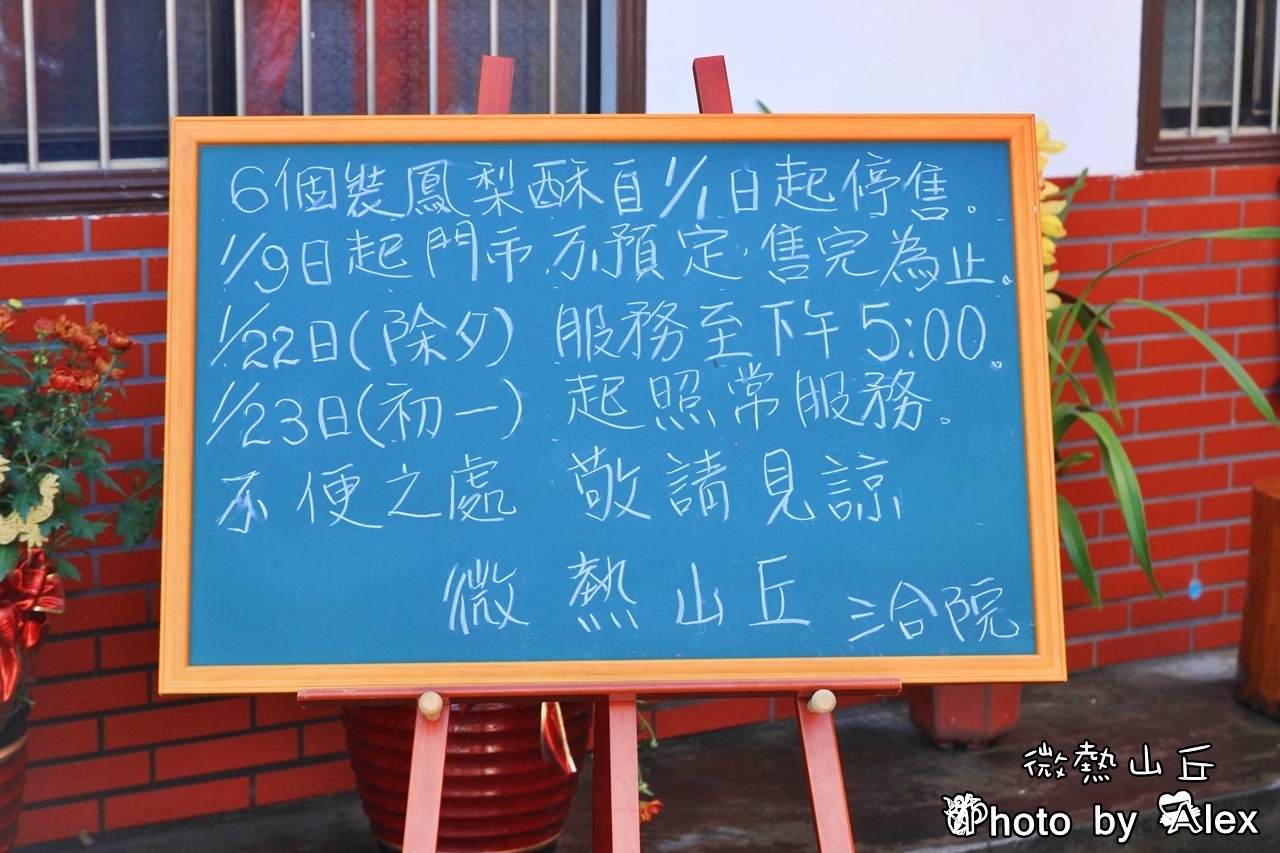 6個裝鳳梨酥自1/1日起停售。
1/9日起門市不預定,售完為止。
1/22日(除夕) 服務至下午5:00
1/23日(初一) 起照常服務。
不便之處 敬請見諒
微熱山丘 三合院
微熱山丘
Photo by Alex